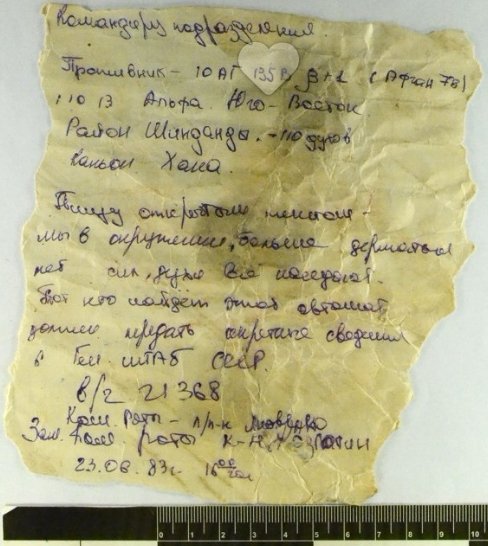 Командиру подразделения.
Противник - 10 АГ 135В β+2 (Афган 78)
110 13 Альфа Юго-Восток
Район Шинданда. - 110 духов
Каньон Хана.
Пишу открытым текстом -
мы в окружении, больше держаться
нет сил, духи все наседают.
Тот кто найдет этот автомат
должен передать секретные сведения
в Ген. штаб СССР.
в/ч 21368
Ком. Роты - п/п-к
Зам. ком. роты к-н
23.06.83г. 16 00
0 1 2 3 4 5 6 7 8 9 10